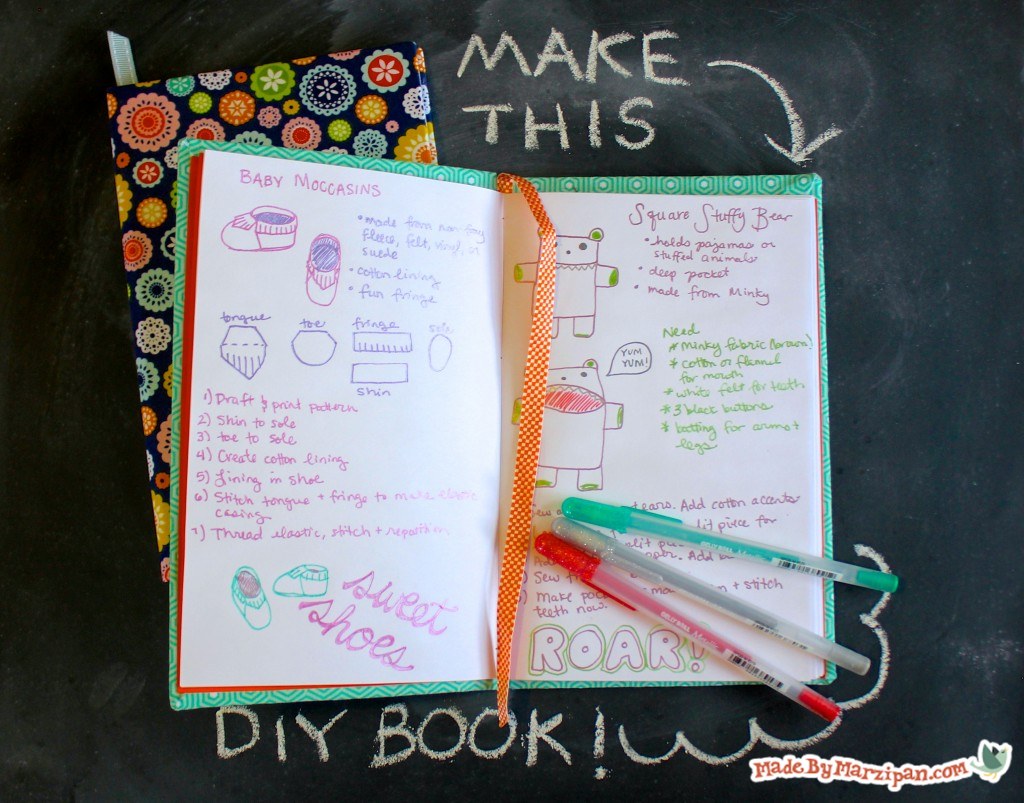 MAKE
THIS
BABY MOCCASINS
• made from non-fray
fleece, felt, vinyl, or
suede
• cotton lining
• fun fringe
tongue toe fringe sole
shin
1) Draft & print pattern
2) Shin to sole
3) toe to sole
4) Create cotton lining
5) Lining in shoe
6) Stitch tongue + fringe to make elastic
casing
7) Thread elastic, stitch + reposition
sweet
shoes
Square Stuffy Bear
• holds pajamas or
stuffed animals
• deep pocket
• made from Minky
YUM
YUM!
Need
* minky fabric (brown)
* cotton or flannel
for mouth
* white felt for teeth
* 3 black buttons
* batting for arms +
legs
ears. Add cotton accents
piece for
Add
Sew
+ stitch
Make
teeth now.
ROAR!
DIY BOOK!
MadeByMarzipan.com